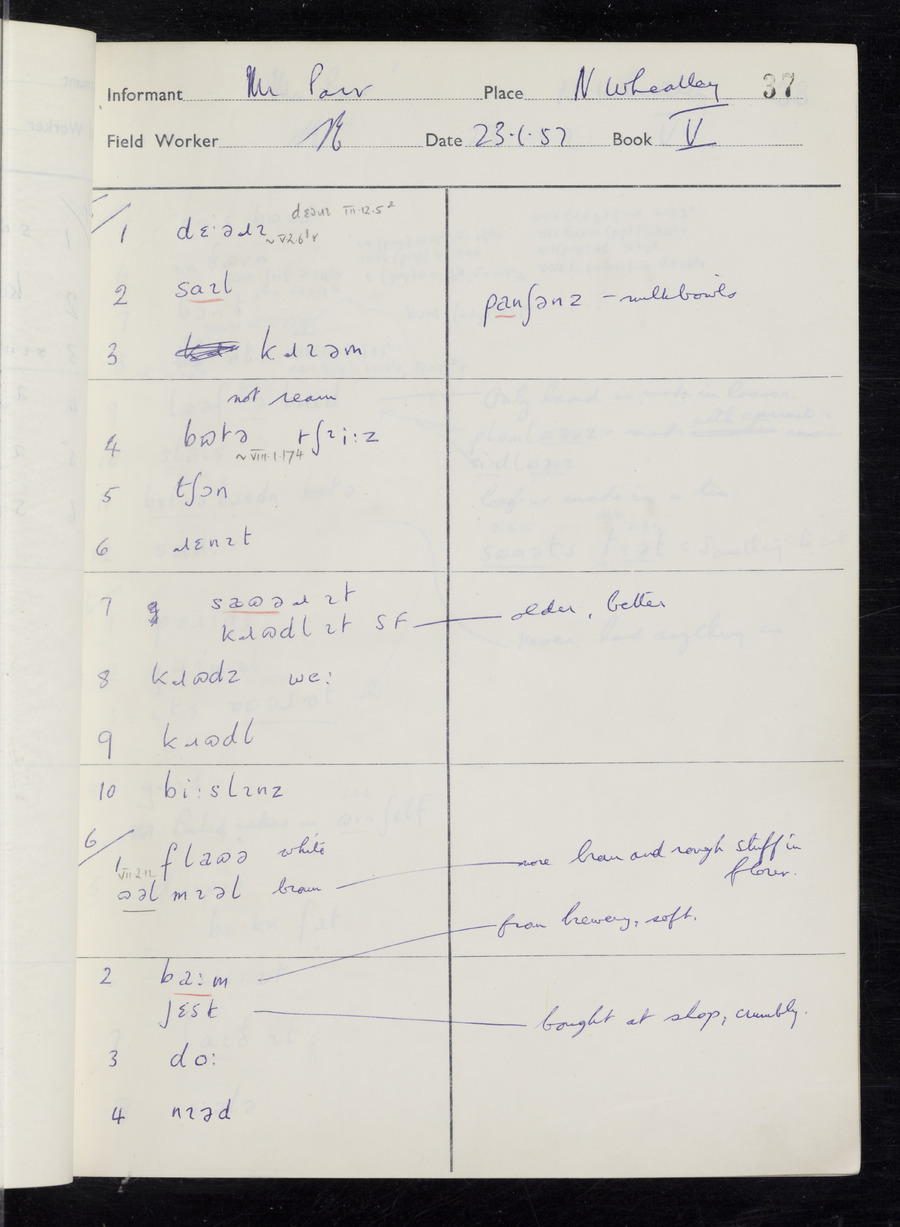 Informant Mr Parr Place N Wheatley 37
Field Worker Date 23·1·57 Book V
5/
1 dɛ·əɹɪ
dɛəɹɪ VII·12·5²
~ V.2.6¹
2 saɪl
panʃənz – milkbowls
3 kɹɪəm
not ream
4 bʊtə tʃɪi:z
~ VIII·1·174
5 tʃən
6 ɹɛnɪt
7 saʊəɹ ɪt
kɹʊdl ɪt SF older, better
8 kɹʊdz we:
9 kɹʊdl
10 bi:slɪnz
6/
1 flaʊə white
VII·2·12
ʊəl mɪəl brown more bran and rough stuff in
flour.
from brewery, soft.
2 ba:m
jɛst bought at shop, crumbly.
3 do:
4 nɪəd